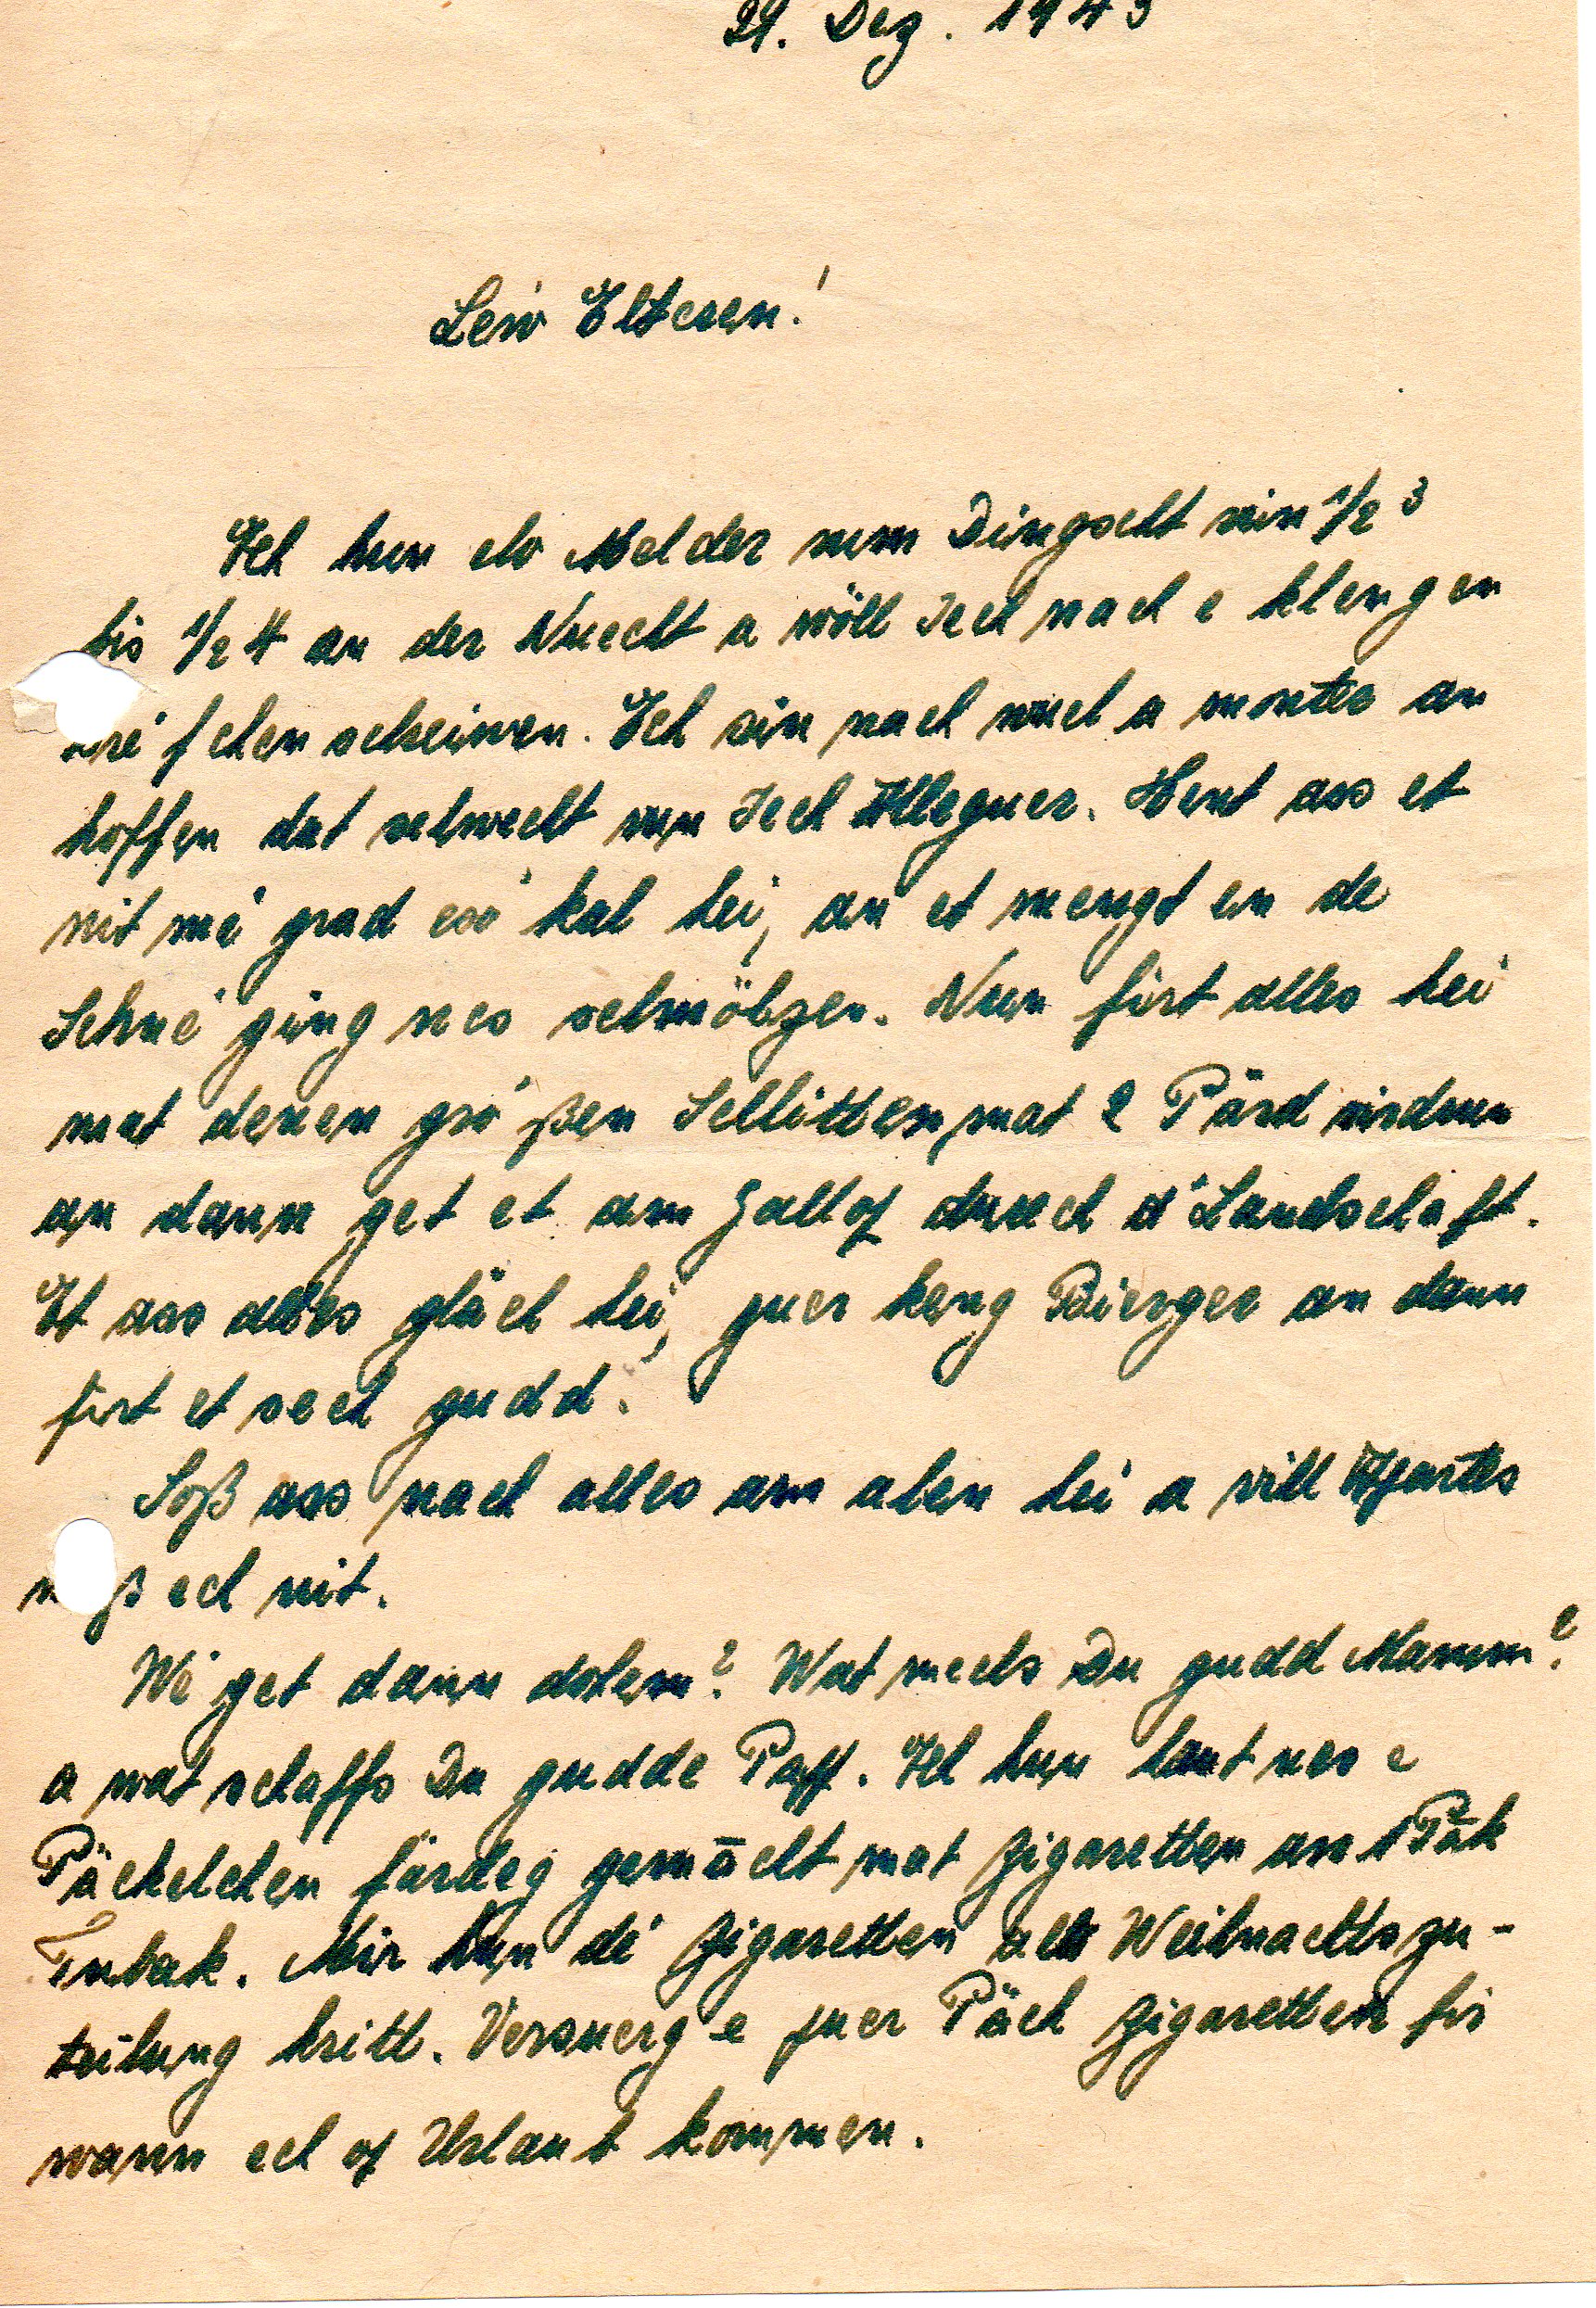 21. Dez. 1943
Leiw Elteren!
Ech hun elo Melder vum Dingscht vun 1/2 3
bis 1/2 4 an der Nuecht a wöll Iech nach e klengen
fchen schreiwen. Ech sin nach wuel a monter an
hoffen dat selwecht vun Iech Alleguer. Hent ass et
nit mé grad esó kal hei, an et mengt en de
Schné ging nes schmölzen. Nun firt alles hei
mat denen gró ßen Schlitten, mat 2 Pärd virdrun
an dann get et am Gallop durech d'Landschaft.
Et ass alles gläch hei, guer keng Bierger an dann
firt et sech gudd.
Soß ass nach alles am alen hei a vill Neies
ß ech nit.
Wé get dann doheem? Wat mechs Du gudd Mamm?
a wat schaffs Du gudde Papp. Ech hun haut nes e
Päckelchen färdeg gemācht mat Zigaretten an 1 Pāk
Tubak. Mir hun dé Zigaretten als Weihnachtszu-
teilung kritt. Versuerg e puer Päck Zigaretten fir
wann ech op Urlaub kommen.